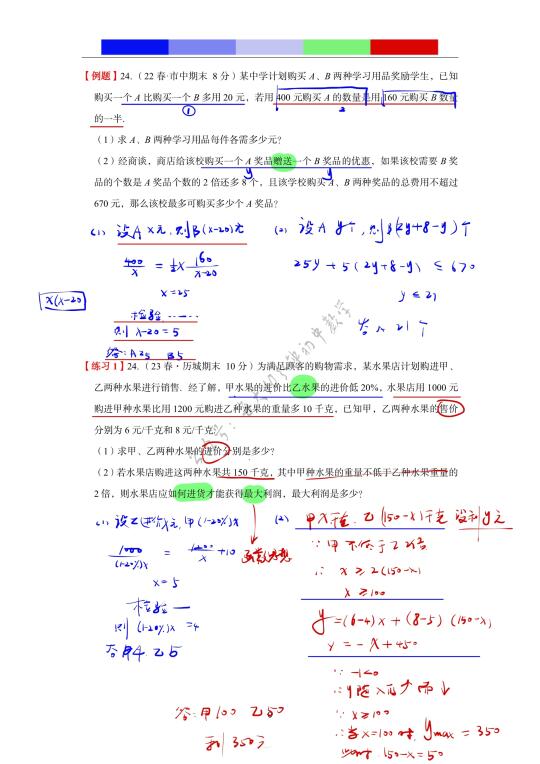 【例题】24.（22 春·市中期末 8 分）某中学计划购买 A、B 两种学习用品奖励学生，已知
购买一个 A 比购买一个 B 多用 20 元，若用 400 元购买 A 的数量是用 160 元购买 B 数量
① 2
的一半.
（1）求 A、B 两种学习用品每件各需多少元？
（2）经商谈，商店给该校购买一个 A 奖品赠送一个 B 奖品的优惠，如果该校需要 B 奖
y y
品的个数是 A 奖品个数的 2 倍还多 8 个，且该学校购买 A、B 两种奖品的总费用不超过
670 元，那么该校最多可购买多少个 A 奖品？
(1) 设A x元, 则B(x-20)元
400/x = ½× 160/(x-20)
x=25
x(x-20)
检验 ······
则 x-20=5
答: A25 B5
(2) 设A y个, 则B(2y+8-y)个
25y+5(2y+8-y) ≤ 670
y ≤ 21
答 21个
【练习 1】24.（23 春·历城期末 10 分）为满足顾客的购物需求，某水果店计划购进甲、
乙两种水果进行销售．经了解，甲水果的进价比乙水果的进价低 20%，水果店用 1000 元
购进甲种水果比用 1200 元购进乙种水果的重量多 10 千克，已知甲，乙两种水果的售价
分别为 6 元/千克和 8 元/千克．
（1）求甲、乙两种水果的进价分别是多少？
（2）若水果店购进这两种水果共 150 千克，其中甲种水果的重量不低于乙种水果重量的
2 倍，则水果店应如何进货才能获得最大利润，最大利润是多少？
(1) 设乙进价x元, 甲(1-20%)x
1000/(1-20%)x = 1200/x +10
x=5
检验一
则 (1-20%)x =4
答甲4 乙5
函数思想
(2) 甲x千克, 乙(150-x)千克 设利y元
∵甲不低于乙2倍
∴ x≥2(150-x)
x≥100
y=(6-4)x+(8-5)(150-x)
y=-x+450
∵ -1<0
∴y随x的个而↓
∵ x≥100
∴当x=100时, ymax=350
此时 150-x=50
答: 甲100 乙50
利350元